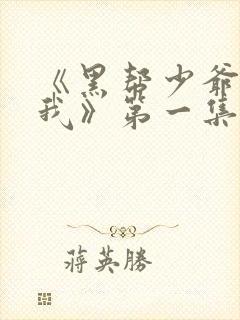 《黑帮少爷
我》第一集
蒋英勝